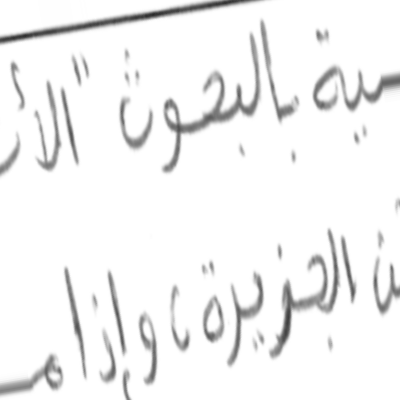 سية بالبحوث "الأ
ن الجزيرة، وإذا مـ